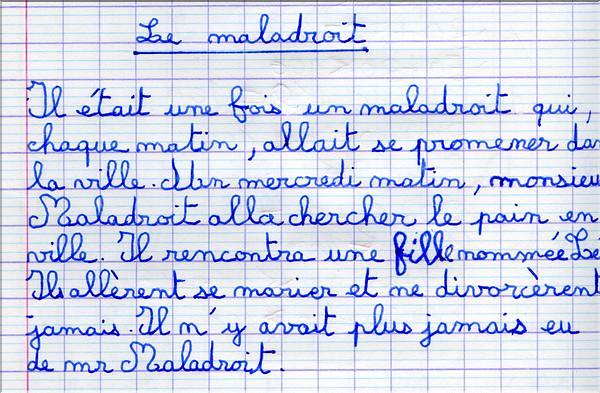 Le maladroit
Il était une fois un maladroit qui,
chaque matin, allait se promener dan
la ville. Un mercredi matin, monsieu
Maladroit alla chercher le pain en
ville. Il rencontra une fille nommée Lé
Ils allèrent se marier et ne divorcèrent
jamais. Il n'y avait plus jamais eu
de mr Maladroit.